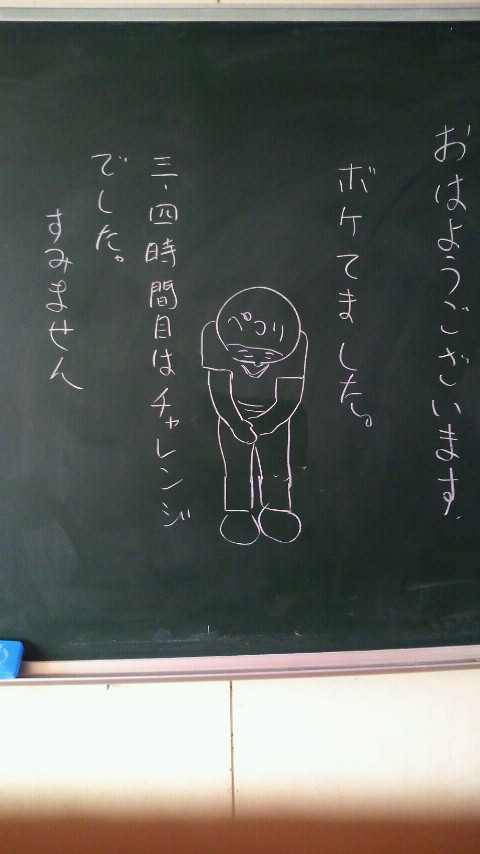 おはようございます。
ボケてました。
ぺコリ
三・四時間目はチャレンジ
でした。
すみません